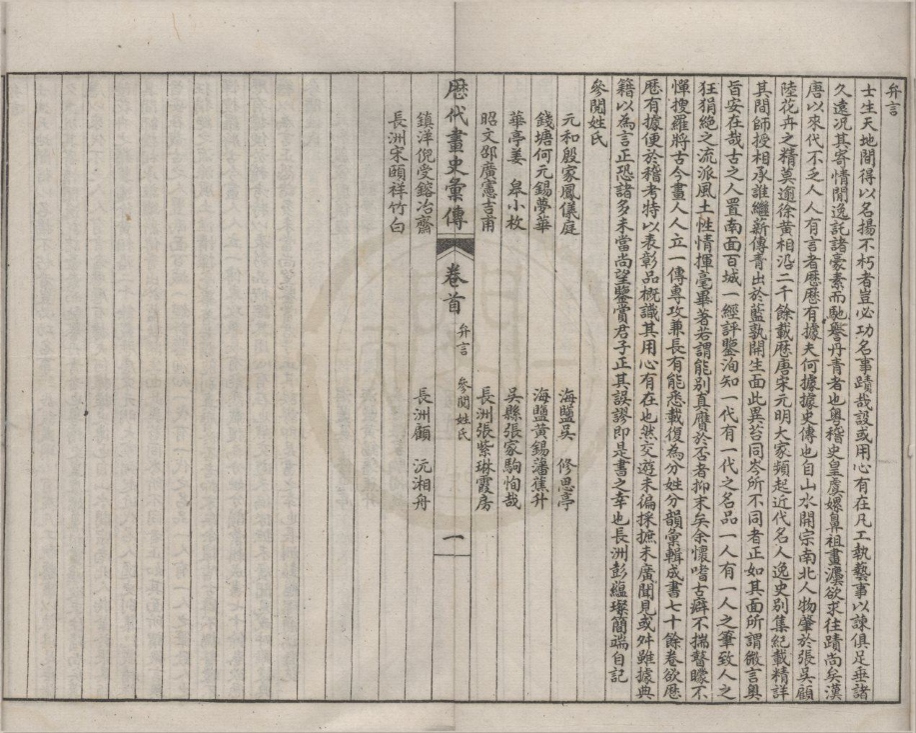 弁言
士生天地間得以名揚不朽者豈必功名事蹟哉設或用心有在凡工執藝事以諫俱足垂諸
久遠况其寄情閒逸託諸豪素而馳譽丹青者也粤稽史皇虞嫘鼻祖畫灋欲求往蹟尚矣漢
唐以來代不乏人人有言者歷歷有據夫何據據史傳也自山水開宗南北人物肇於張吳顧
陸花卉之精莫逾徐黃相沿二千餘載歷唐宋元明大家頻起近代名人逸史別集紀載精詳
其間師授相承誰繼薪傳青出於藍孰開生面此異苔同岑所不同者正如其面所謂微言奧
旨安在哉古之人置南面百城一經評鑒洵知一代有一代之名品一人有一人之筆致人之
狂狷絕之流派風土性情揮毫畢著若謂能別真贋於否者抑末矣余懷嗜古癖不揣瞽矇不
憚搜羅將古今畫人人立一傳專攻兼長有能悉載復為分姓分韻彙輯成書七十餘卷欲歷
歷有據便於稽考特以表彰品概識其用心有在也然交遊未徧採摭未廣聞見或舛雖據典
籍以為言正恐諸多未當尚望鑒賞君子正其誤謬即是書之幸也長洲彭蘊璨簡端自記
參閱姓氏
元和殷家鳳儀庭　海鹽吳　修思亭
錢塘何元錫夢華　海鹽黃錫蕃蕉升
華亭姜　皋小枚　吳縣張家駒恂哉
昭文邵廣憲吉甫　長洲張紫琳霞房
歷代畫史彙傳　卷首　弁言　參閱姓氏　一
鎮洋倪受鎔冶齋　長洲顧　沅湘舟
長洲宋頤祥竹白